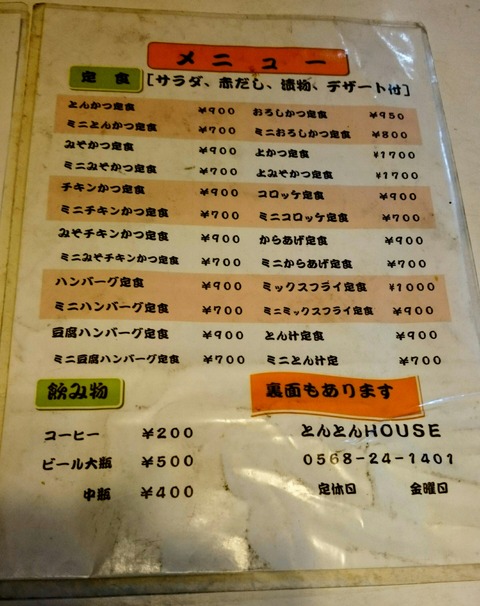 メニュー
定食 [サラダ、赤だし、漬物、デザート付]
とんかつ定食 ¥900 おろしかつ定食 ¥950
ミニとんかつ定食 ¥700 ミニおろしかつ定食 ¥800
みそかつ定食 ¥900 上かつ定食 ¥1700
ミニみそかつ定食 ¥700 上みそかつ定食 ¥1700
チキンかつ定食 ¥900 コロッケ定食 ¥900
ミニチキンかつ定食 ¥700 ミニコロッケ定食 ¥700
みそチキンかつ定食 ¥900 からあげ定食 ¥900
ミニみそチキンかつ定食 ¥700 ミニからあげ定食 ¥700
ハンバーグ定食 ¥900 ミックスフライ定食 ¥1000
ミニハンバーグ定食 ¥700 ミニミックスフライ定食 ¥900
豆腐ハンバーグ定食 ¥900 とん汁定食 ¥900
ミニ豆腐ハンバーグ定食 ¥700 ミニとん汁定 ¥700
飲み物 裏面もあります
コーヒー ¥200 とんとんHOUSE
ビール大瓶 ¥500 0568-24-1401
中瓶 ¥400 定休日 金曜日